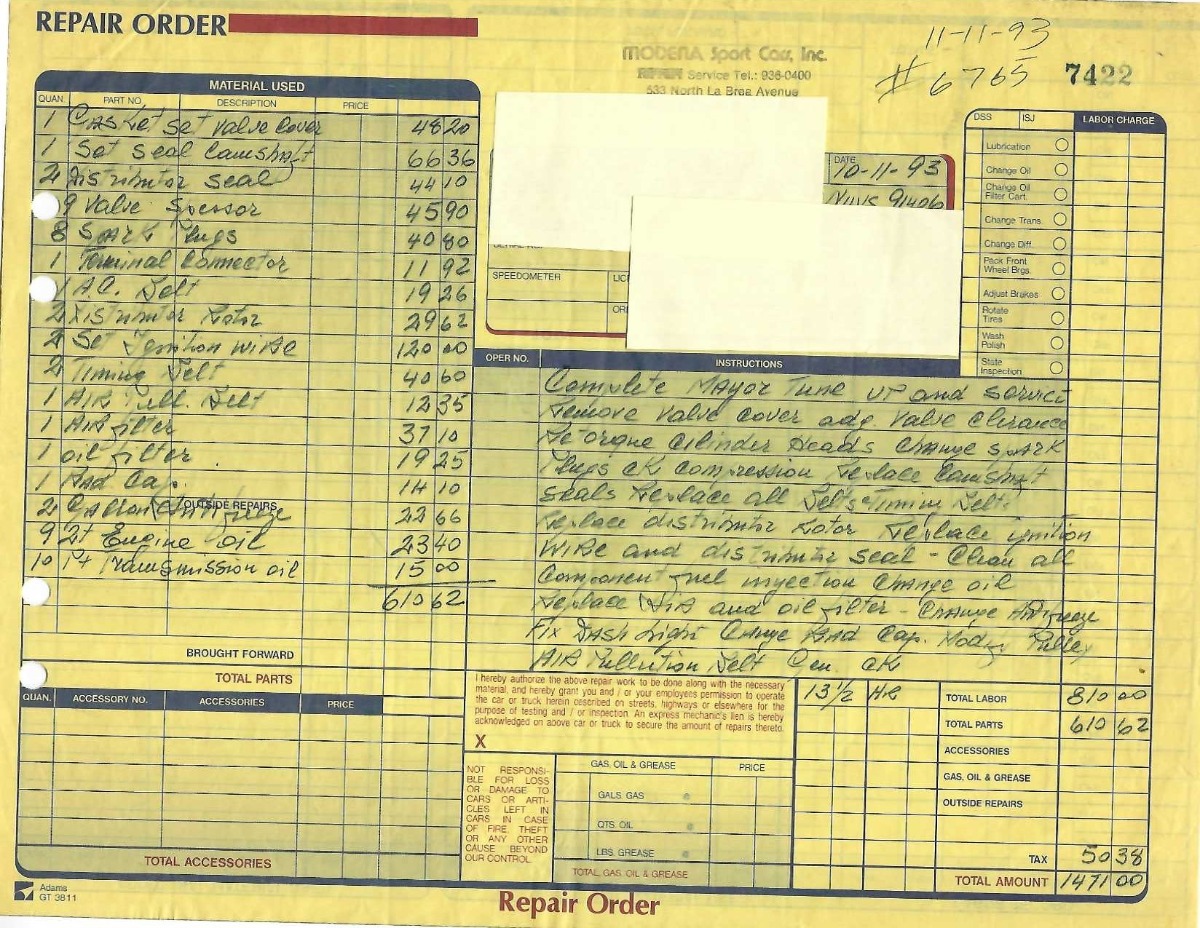 REPAIR ORDER
11-11-93
# 6765
7422
MODENA Sport Cars, Inc.
FERRARI Service Tel.: 936-0400
533 North La Brea Avenue
MATERIAL USED
QUAN. PART NO. DESCRIPTION PRICE
1 Gasket set valve cover 48 20
1 Set seal Camshaft 66 36
2 Distributor seal 44 10
9 Valve Spessor 45 90
8 Spark Plugs 40 80
1 Terminal Connector 11 92
1 A.C. Belt 19 26
2 Distributor Rotor 29 62
2 Set Ignition wire 120 00
2 Timing Belt 40 60
1 AIR Pull. Belt 12 35
1 AIR filter 37 10
1 oil filter 19 25
1 Rad Cap. 14 10
OUTSIDE REPAIRS
2 Gallon Antifreeze 22 66
9 2t Engine oil 23 40
10 Pt Transmission oil 15 00
610 62
BROUGHT FORWARD
TOTAL PARTS
DATE
10-11-93
NUYS 91406
SPEEDOMETER
DSS ISJ LABOR CHARGE
Lubrication
Change Oil
Change Oil
Filter Cart.
Change Trans.
Change Diff.
Pack Front
Wheel Brgs.
Adjust Brakes
Rotate
Tires
Wash
Polish
State
Inspection
OPER NO. INSTRUCTIONS
Complete Mayor Tune up and service
Remove valve cover adg valve clirance
Retorque Cilinder Heads Change spark
Plugs CK compression Replace Camshaft
seals Replace all Belts Timing Belt.
Replace distributor Rotor Replace ignition
wire and distributor seal - Clean all
Component fuel injection Change oil
Replace Air and oil filter - Change Antifreeze
Fix Dash Light Change Rad Cap. Modify Pulley
AIR Pullution Belt Gen. CK
I hereby authorize the above repair work to be done along with the necessary
material, and hereby grant you and / or your employees permission to operate
the car or truck herein described on streets, highways or elsewhere for the
purpose of testing and / or inspection. An express mechanic's lien is hereby
acknowledged on above car or truck to secure the amount of repairs thereto.
X
13 1/2 HR
TOTAL LABOR 810 00
TOTAL PARTS 610 62
ACCESSORIES
GAS, OIL & GREASE
OUTSIDE REPAIRS
TAX 50 38
TOTAL AMOUNT 1471 00
QUAN. ACCESSORY NO. ACCESSORIES PRICE
TOTAL ACCESSORIES
NOT RESPONSI-
BLE FOR LOSS
OR DAMAGE TO
CARS OR ARTI-
CLES LEFT IN
CARS IN CASE
OF FIRE, THEFT
OR ANY OTHER
CAUSE BEYOND
OUR CONTROL
GAS, OIL & GREASE PRICE
GALS. GAS @
QTS. OIL @
LBS. GREASE @
TOTAL GAS, OIL & GREASE
Adams
GT 3811
Repair Order